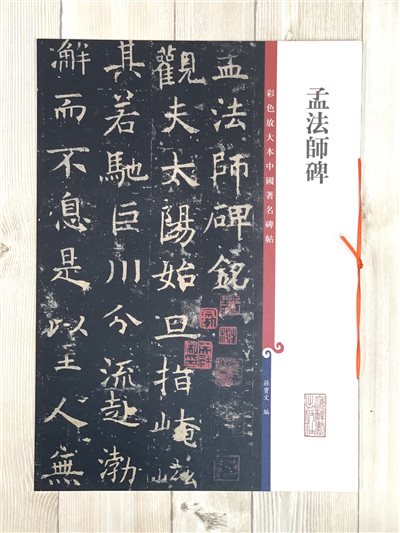 孟法師碑
彩色放大本中國著名碑帖
孫寶文 編
孟法師碑銘
觀夫太陽始旦指崦嵫
其若馳巨川分流赴渤
澥而不息是以至人無